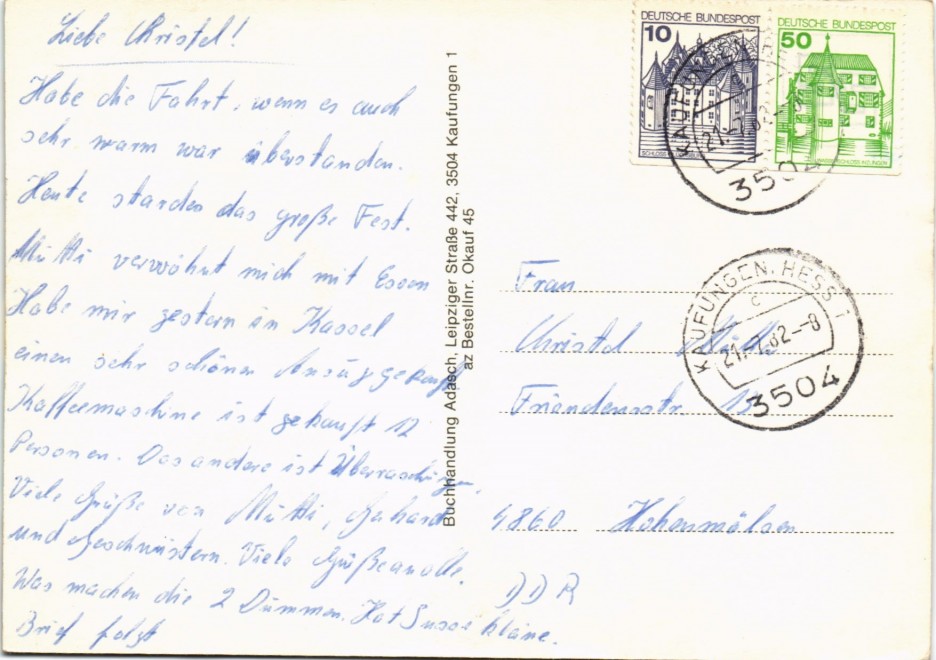 Liebe Christel!
Habe die Fahrt, wenn es auch
sehr warm war überstanden.
Heute standen das große Fest.
Mutti verwöhnt mich mit Essen
Habe mir gestern in Kassel
einen sehr schönen Anzug gekauft
Kaffeemaschne ist gekauft 12
Personen. Das andere ist Überraschungen.
Viele Grüße von Mutti, Gerhard
und Geschwistern. Viele Grüße an alle.
Was machen die 2 Dummen. Hat Susse kläne.
Brief folgt
Buchhandlung Adasch, Leipziger Straße 442, 3504 Kaufungen 1
az Bestellnr. Okauf 45
DEUTSCHE BUNDESPOST
10
DEUTSCHE BUNDESPOST
50
3504
KAUFUNGEN, HESS 1
c
21.-7.82.-8
3504
Frau
Christel
Friedensstr. 13
4860 Hohenmölsen
DDR